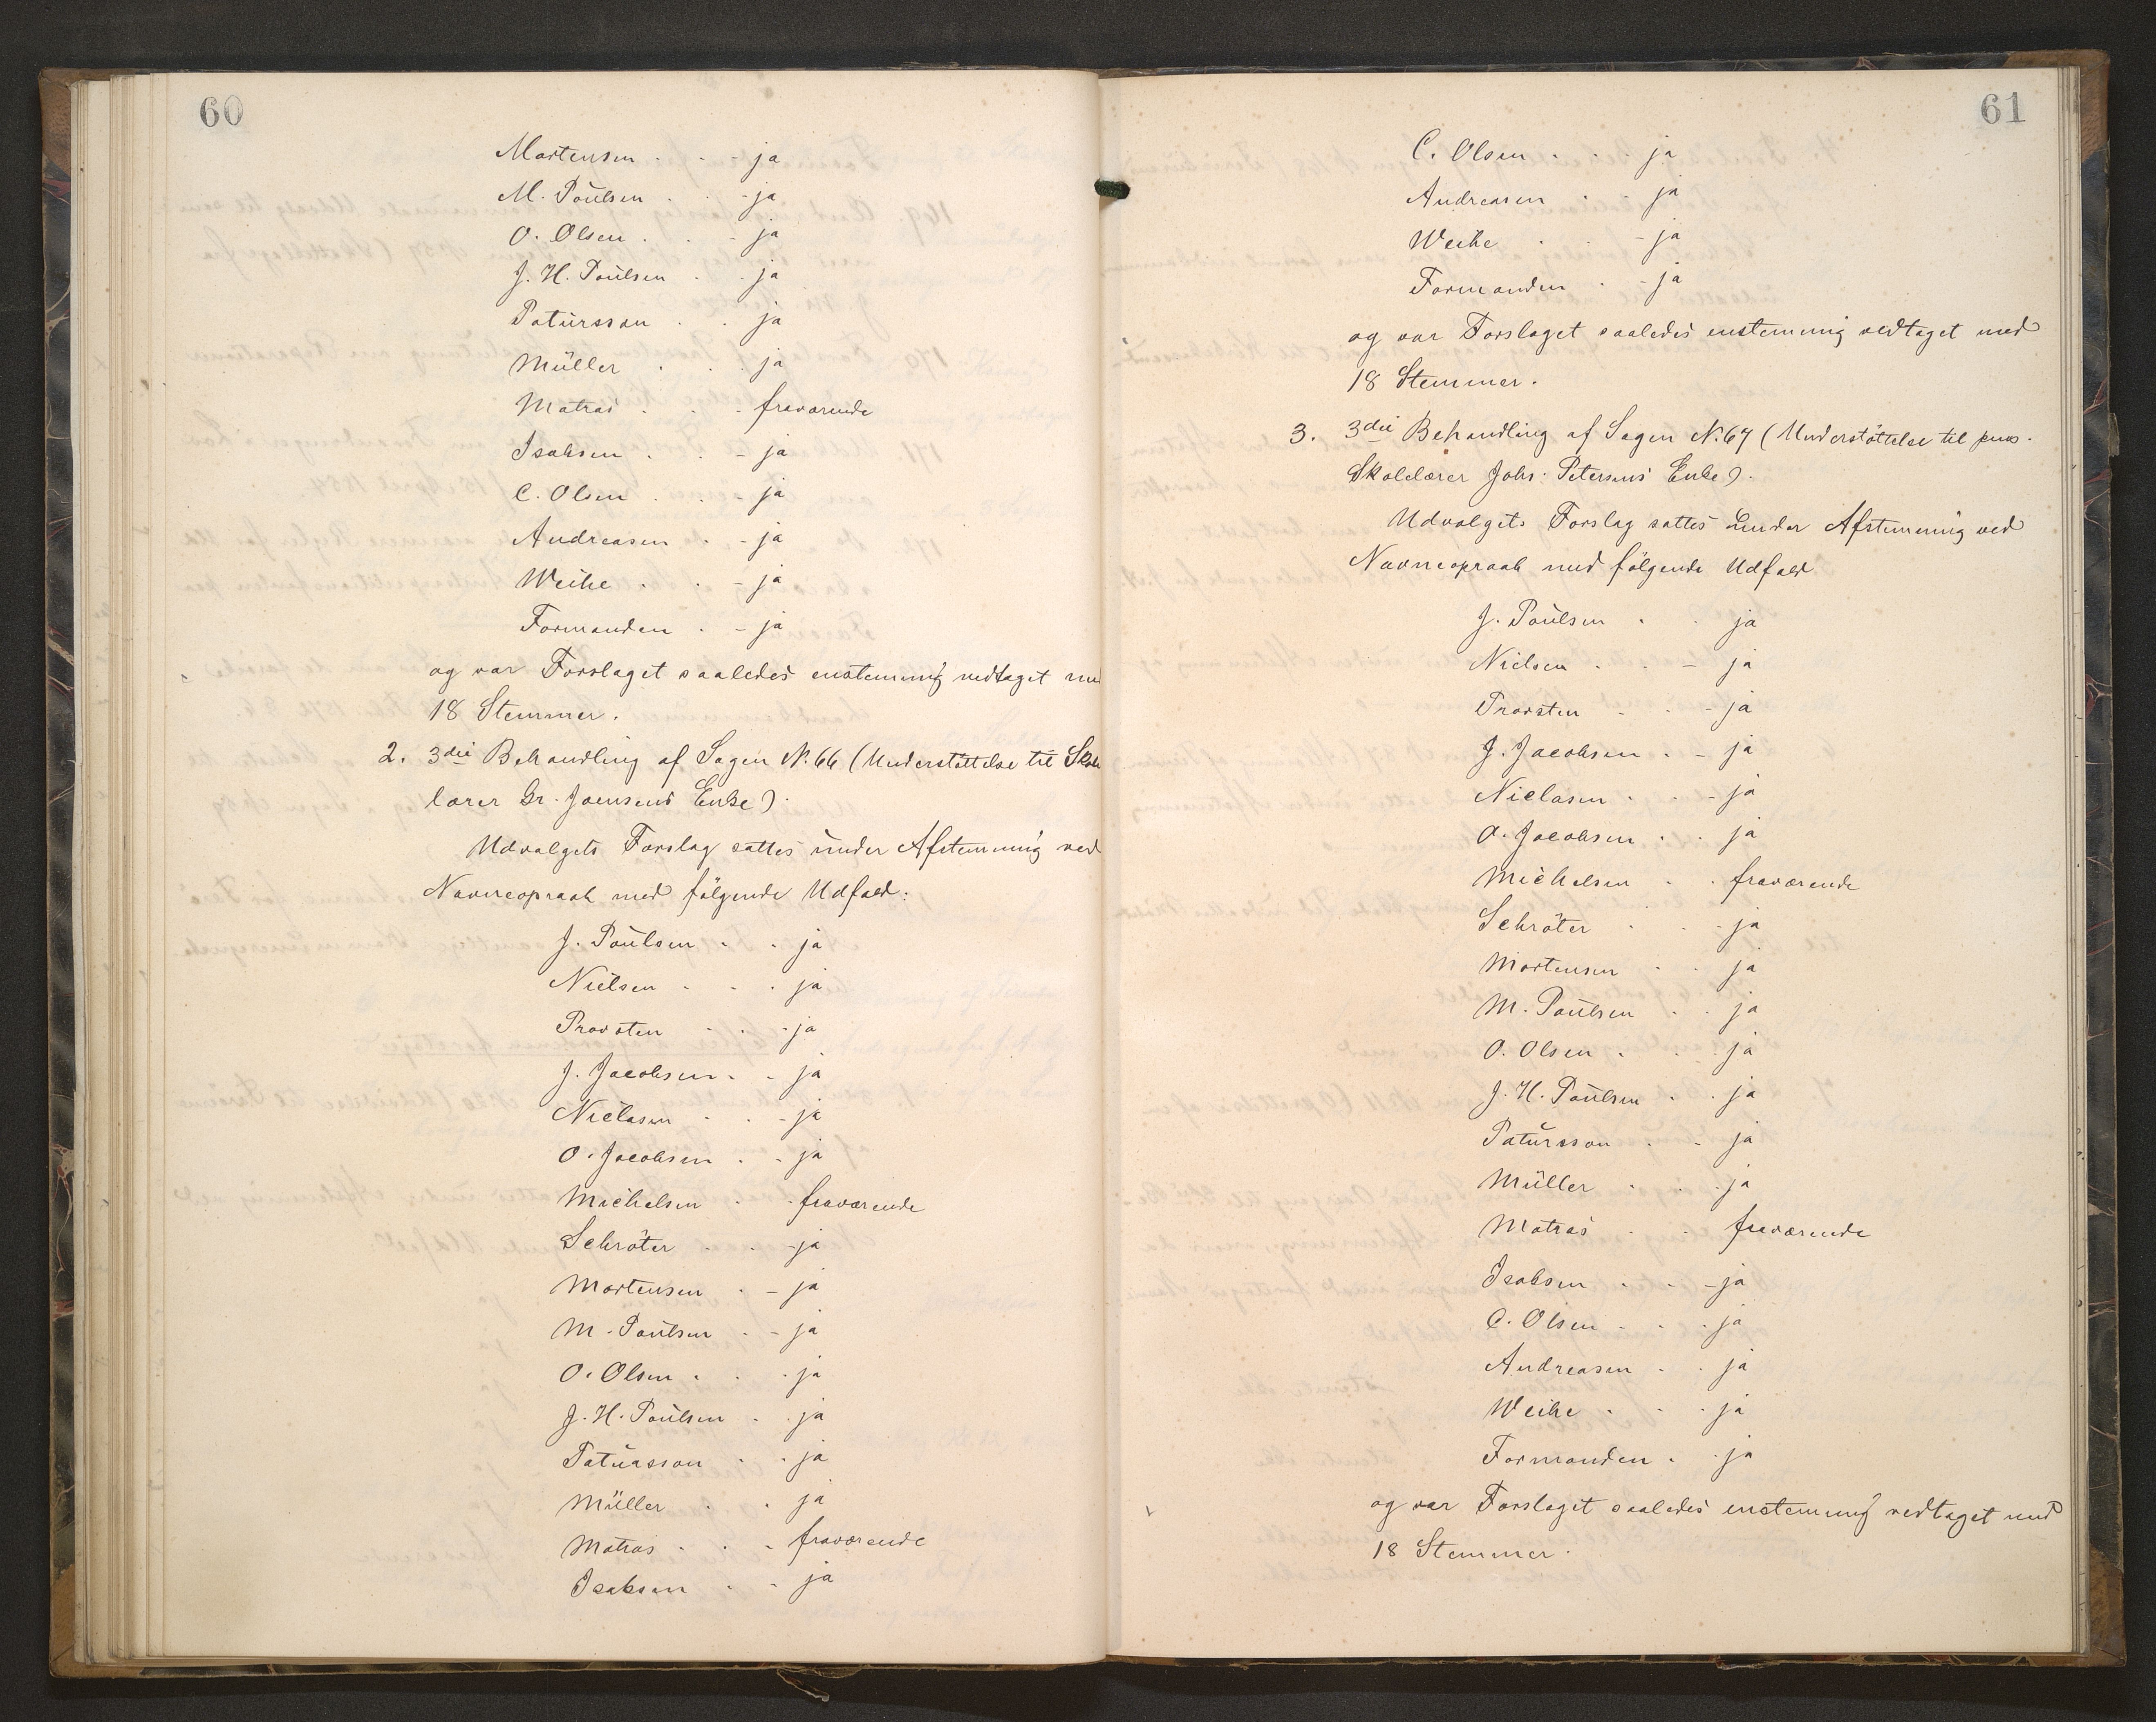 60
Mortensen . . - ja
M. Poulsen . . - ja
O. Olsen . . - ja
J. H. Poulsen . - ja
Patursson . . ja
Müller . . . ja
Matras . . . fraværende
Isaksen . . - ja
C. Olsen . . - ja
Andreasen . - ja
Weihe . . - ja
Formanden . - ja
og var Forslaget saaledes enstemmig vedtaget
18 Stemmer.
2. 3die Behandling af Sagen N. 66 (Understöttelse til Skole
lærer Gr. Joensens Enke).
Udvalgets Forslag sattes under Afstemning ved
Navneopraab med følgende Udfald:
J. Poulsen . . ja
Nielsen . . . ja
Provsten . . - ja
J. Jacobsen . - ja
Niclasen . . - ja
O. Jacobsen . - ja
Michelsen . . fraværende
Schröter . . - ja
Mortensen . - ja
M. Poulsen . - ja
O. Olsen . . . ja
J. H. Poulsen . . ja
Patursson . . ja
Müller . . ja
Matras . . - fraværende
Isaksen . - ja
61
C. Olsen . . . ja
Andreasen . - ja
Weihe . . - ja
Formanden . - ja
og var Forslaget saaledes enstemmig vedtaget med
18 Stemmer.
3. 3die Behandling af Sagen N. 67 (Understöttelse til pens.
Skolelærer Johs. Petersens Enke).
Udvalgets Forslag sattes under Afstemning ved
Navneopraab med følgende Udfald
J. Poulsen . . ja
Nielsen . . - ja
Provsten . . - ja
J. Jacobsen . - ja
Niclasen . . - ja
O. Jacobsen . . ja
Michelsen . . fraværende
Schröter . . - ja
Mortensen . . ja
M. Poulsen . . ja
O. Olsen . . . ja
J. H. Poulsen . . ja
Patursson . - ja
Müller . . . ja
Matras . . fraværende
Isaksen . . - ja
C. Olsen . . . ja
Andreasen . . ja
Weihe . . . ja
Formanden . . ja
og var Forslaget saaledes enstemmig vedtaget med
18 Stemmer.